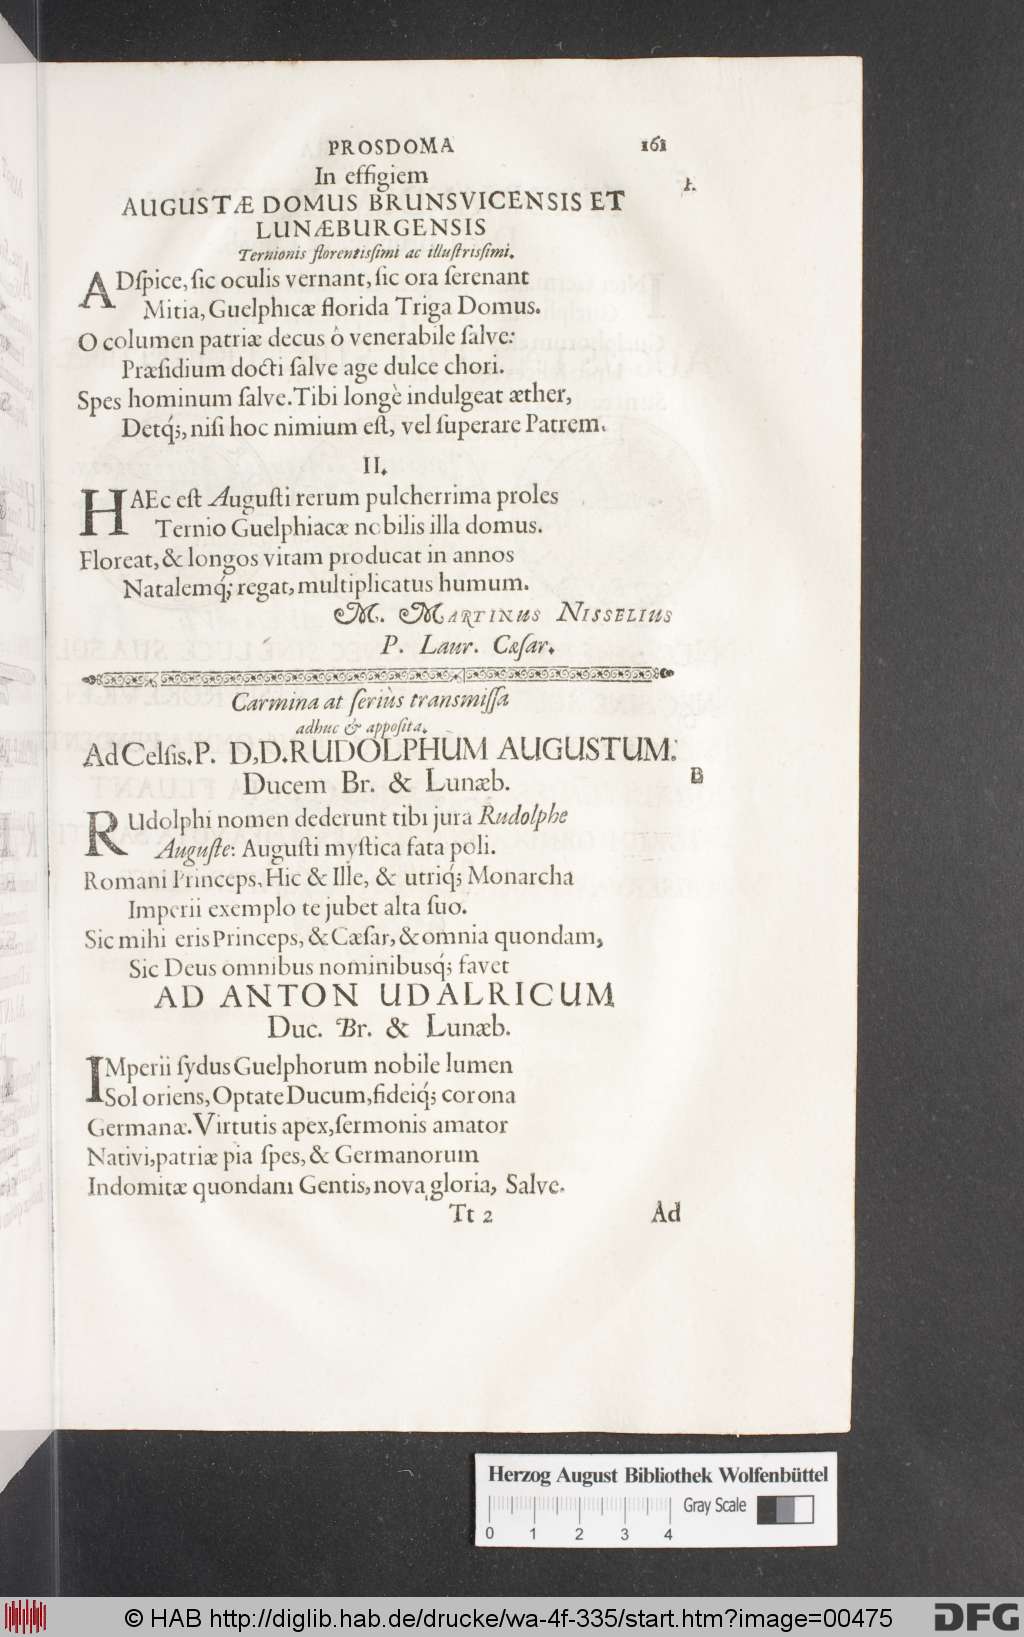 PROSDOMA 161
In effigiem
I.
AUGUSTÆ DOMUS BRUNSVICENSIS ET
LUNÆBURGENSIS
Ternionis florentiſſimi ac illuſtriſſimi.
ADſpice, ſic oculis vernant, ſic ora ſerenant
Mitia, Guelphicæ florida Triga Domus.
O columen patriæ decus ô venerabile ſalve:
Præſidium docti ſalve age dulce chori.
Spes hominum ſalve. Tibi longè indulgeat æther,
Detq́;, niſi hoc nimium eſt, vel ſuperare Patrem.
II.
HAEc eſt Auguſti rerum pulcherrima proles
Ternio Guelphiacæ nobilis illa domus.
Floreat, & longos vitam producat in annos
Natalemq́; regat, multiplicatus humum.
M. MARTINUS NISSELIUS
P. Laur. Cæſar.
Carmina at ſeriùs transmiſſa
adhuc & appoſita.
Ad Celſis. P. D,D. RUDOLPHUM AUGUSTUM.
Ducem Br. & Lunæb.
B
RUdolphi nomen dederunt tibi jura Rudolphe
Auguſte: Auguſti myſtica fata poli.
Romani Princeps, Hic & Ille, & utriq́; Monarcha
Imperii exemplo te jubet alta ſuo.
Sic mihi eris Princeps, & Cæſar, & omnia quondam,
Sic Deus omnibus nominibusq́; favet
AD ANTON UDALRICUM
Duc. Br. & Lunæb.
IMperii ſydus Guelphorum nobile lumen
Sol oriens, Optate Ducum, fideiq́; corona
Germanæ. Virtutis apex, ſermonis amator
Nativi, patriæ pia ſpes, & Germanorum
Indomitæ quondam Gentis, nova gloria, Salve.
Tt 2 Ad
Herzog August Bibliothek Wolfenbüttel
Gray Scale
0 1 2 3 4
© HAB http://diglib.hab.de/drucke/wa-4f-335/start.htm?image=00475
DFG